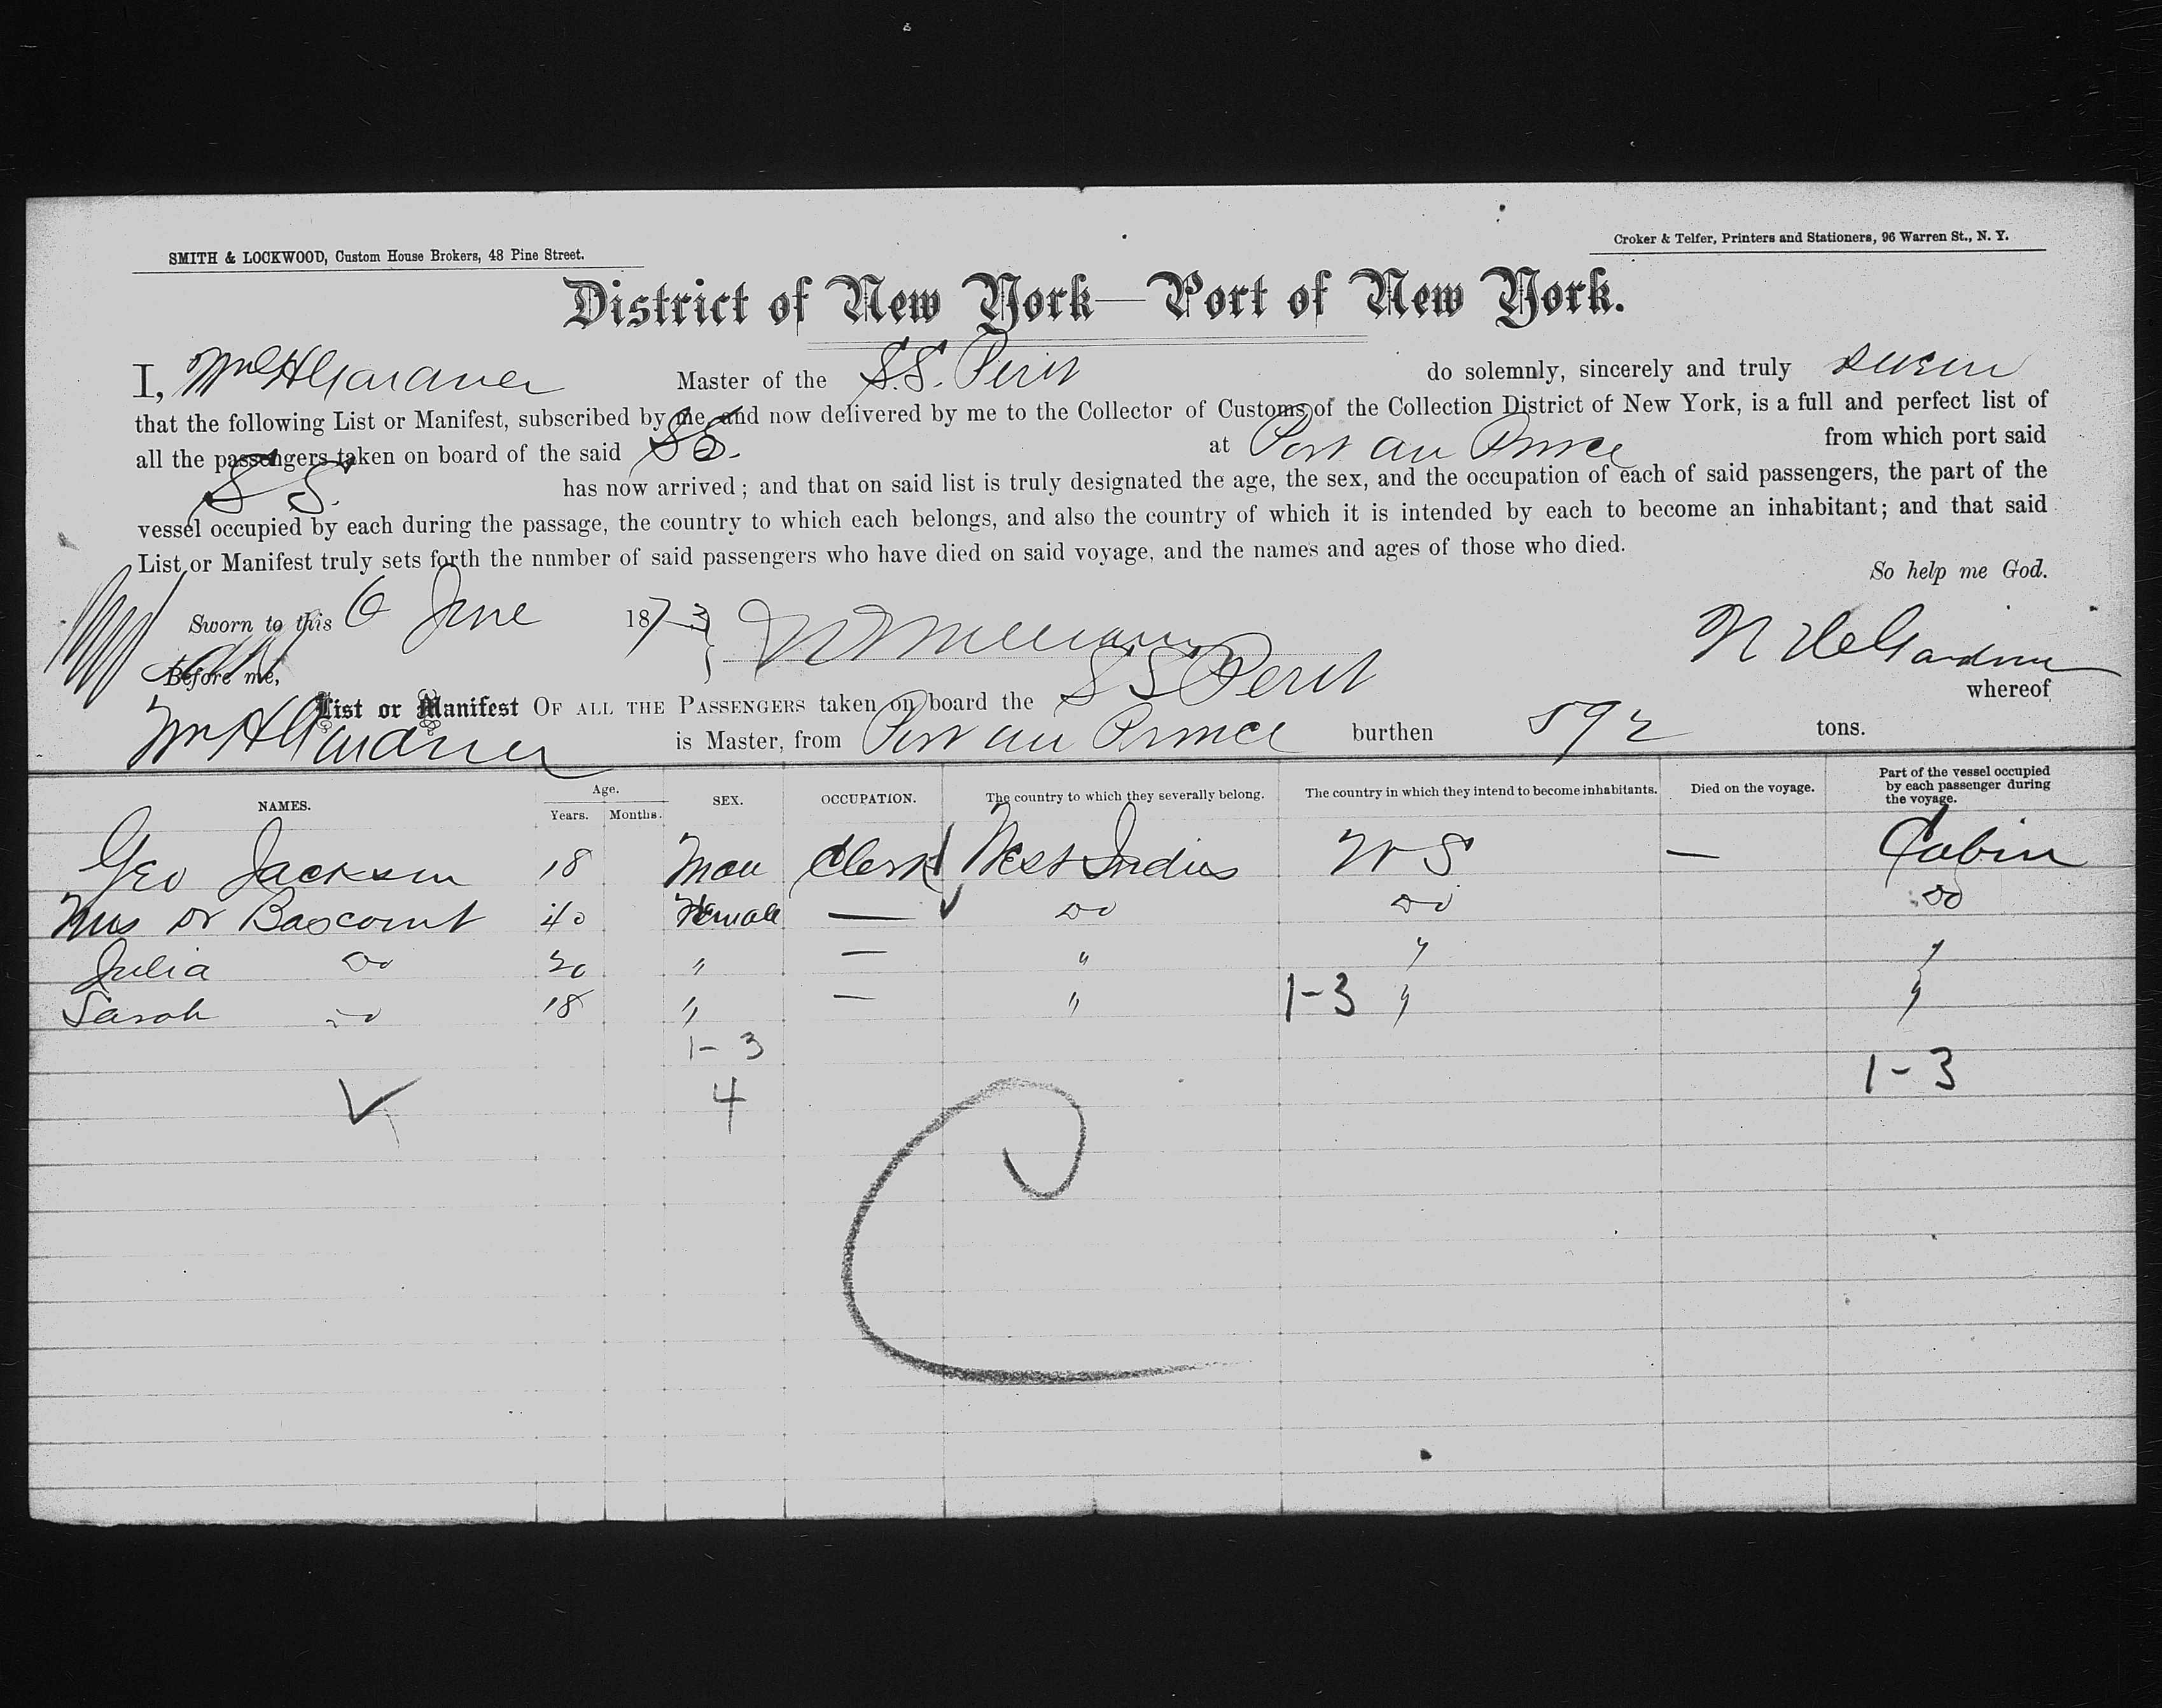 SMITH & LOCKWOOD, Custom House Brokers, 48 Pine Street.
Croker & Telfer, Printers and Stationers, 96 Warren St., N. Y.
District of New York—Port of New York.
I, Wm H Gardner Master of the S.S. Perit do solemnly, sincerely and truly swear
that the following List or Manifest, subscribed by me, and now delivered by me to the Collector of Customs of the Collection District of New York, is a full and perfect list of
all the passengers taken on board of the said SS. at Port au Prince from which port said
S S. has now arrived; and that on said list is truly designated the age, the sex, and the occupation of each of said passengers, the part of the
vessel occupied by each during the passage, the country to which each belongs, and also the country of which it is intended by each to become an inhabitant; and that said
List or Manifest truly sets forth the number of said passengers who have died on said voyage, and the names and ages of those who died.
So help me God.
Sworn to this 6 June 1873
Before me,
List or Manifest OF ALL THE PASSENGERS taken on board the SS Perit whereof
Wm H Gardner is Master, from Port au Prince burthen 592 tons.
NAMES. Age. Years. Months. SEX. OCCUPATION. The country to which they severally belong. The country in which they intend to become inhabitants. Died on the voyage. Part of the vessel occupied by each passenger during the voyage.
Geo Jackson 18 Man Clerk West Indies — Cabin
Mrs Dr Bascomt 40 Female — Do Do Do
Julia Do 20 " — " " "
Sarah Do 18 " — " 1-3 " "
1-3
1-3
4
C